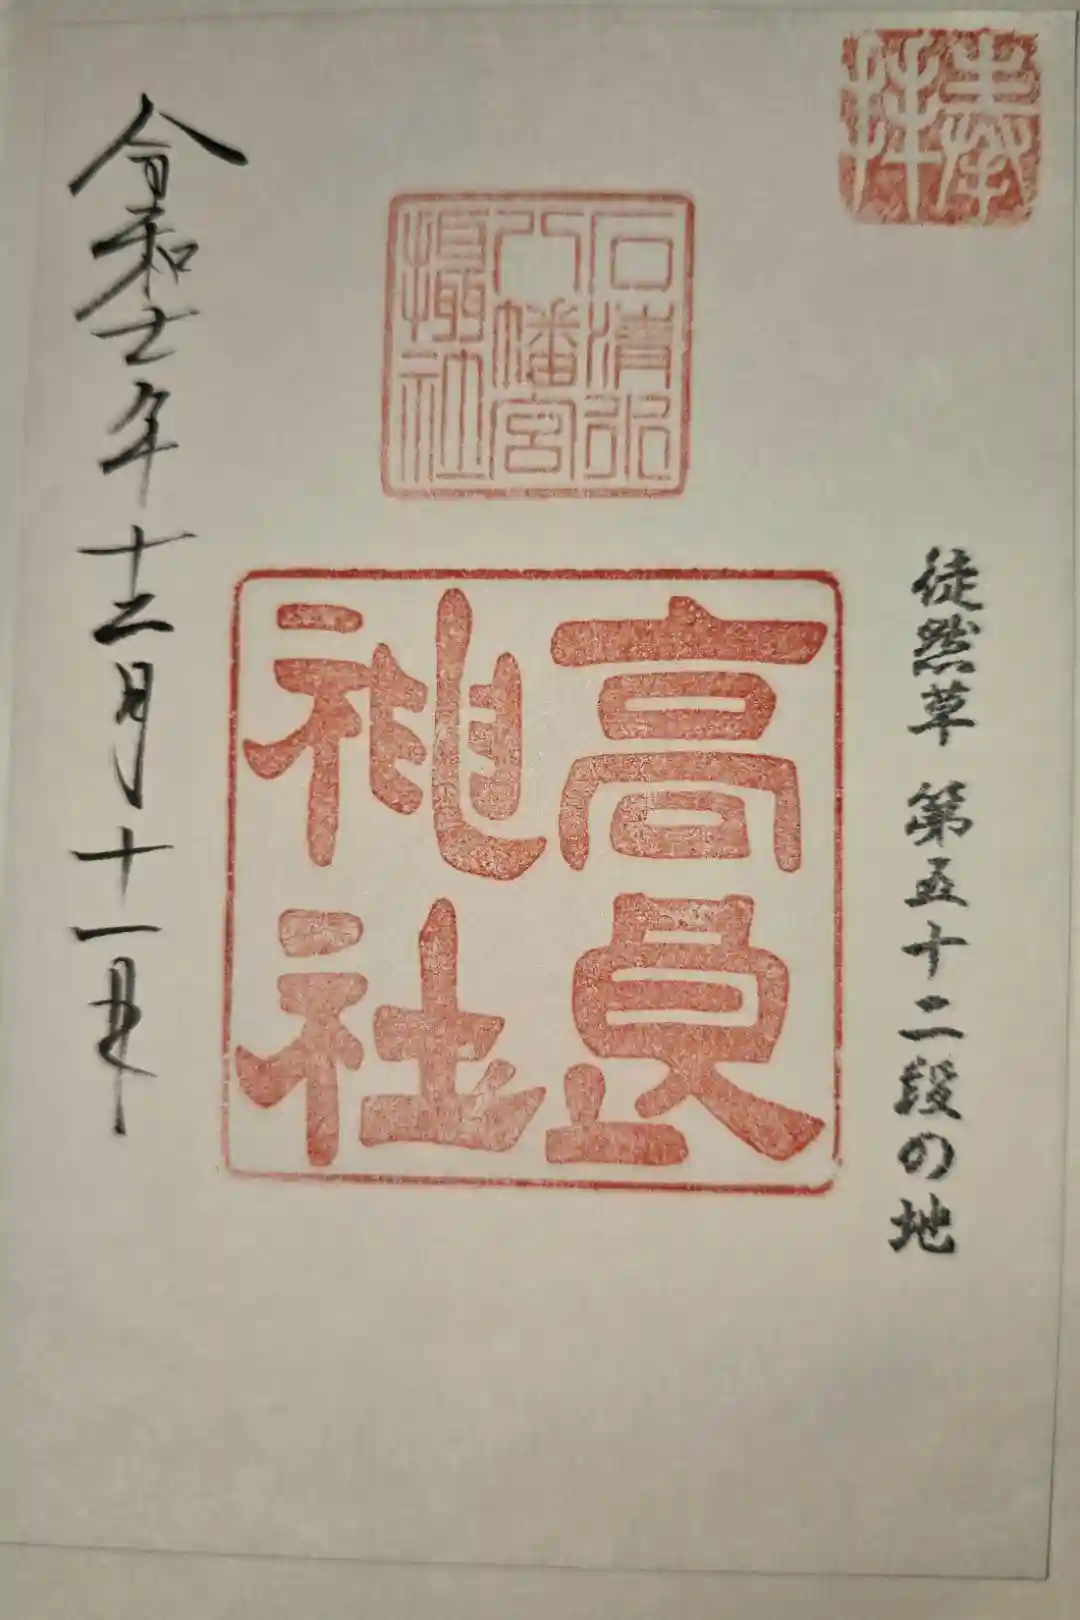 奉拝
徒然草 第五十二段の地
石清水
八幡宮
攝社
高良
神社
令和七年十二月十一日